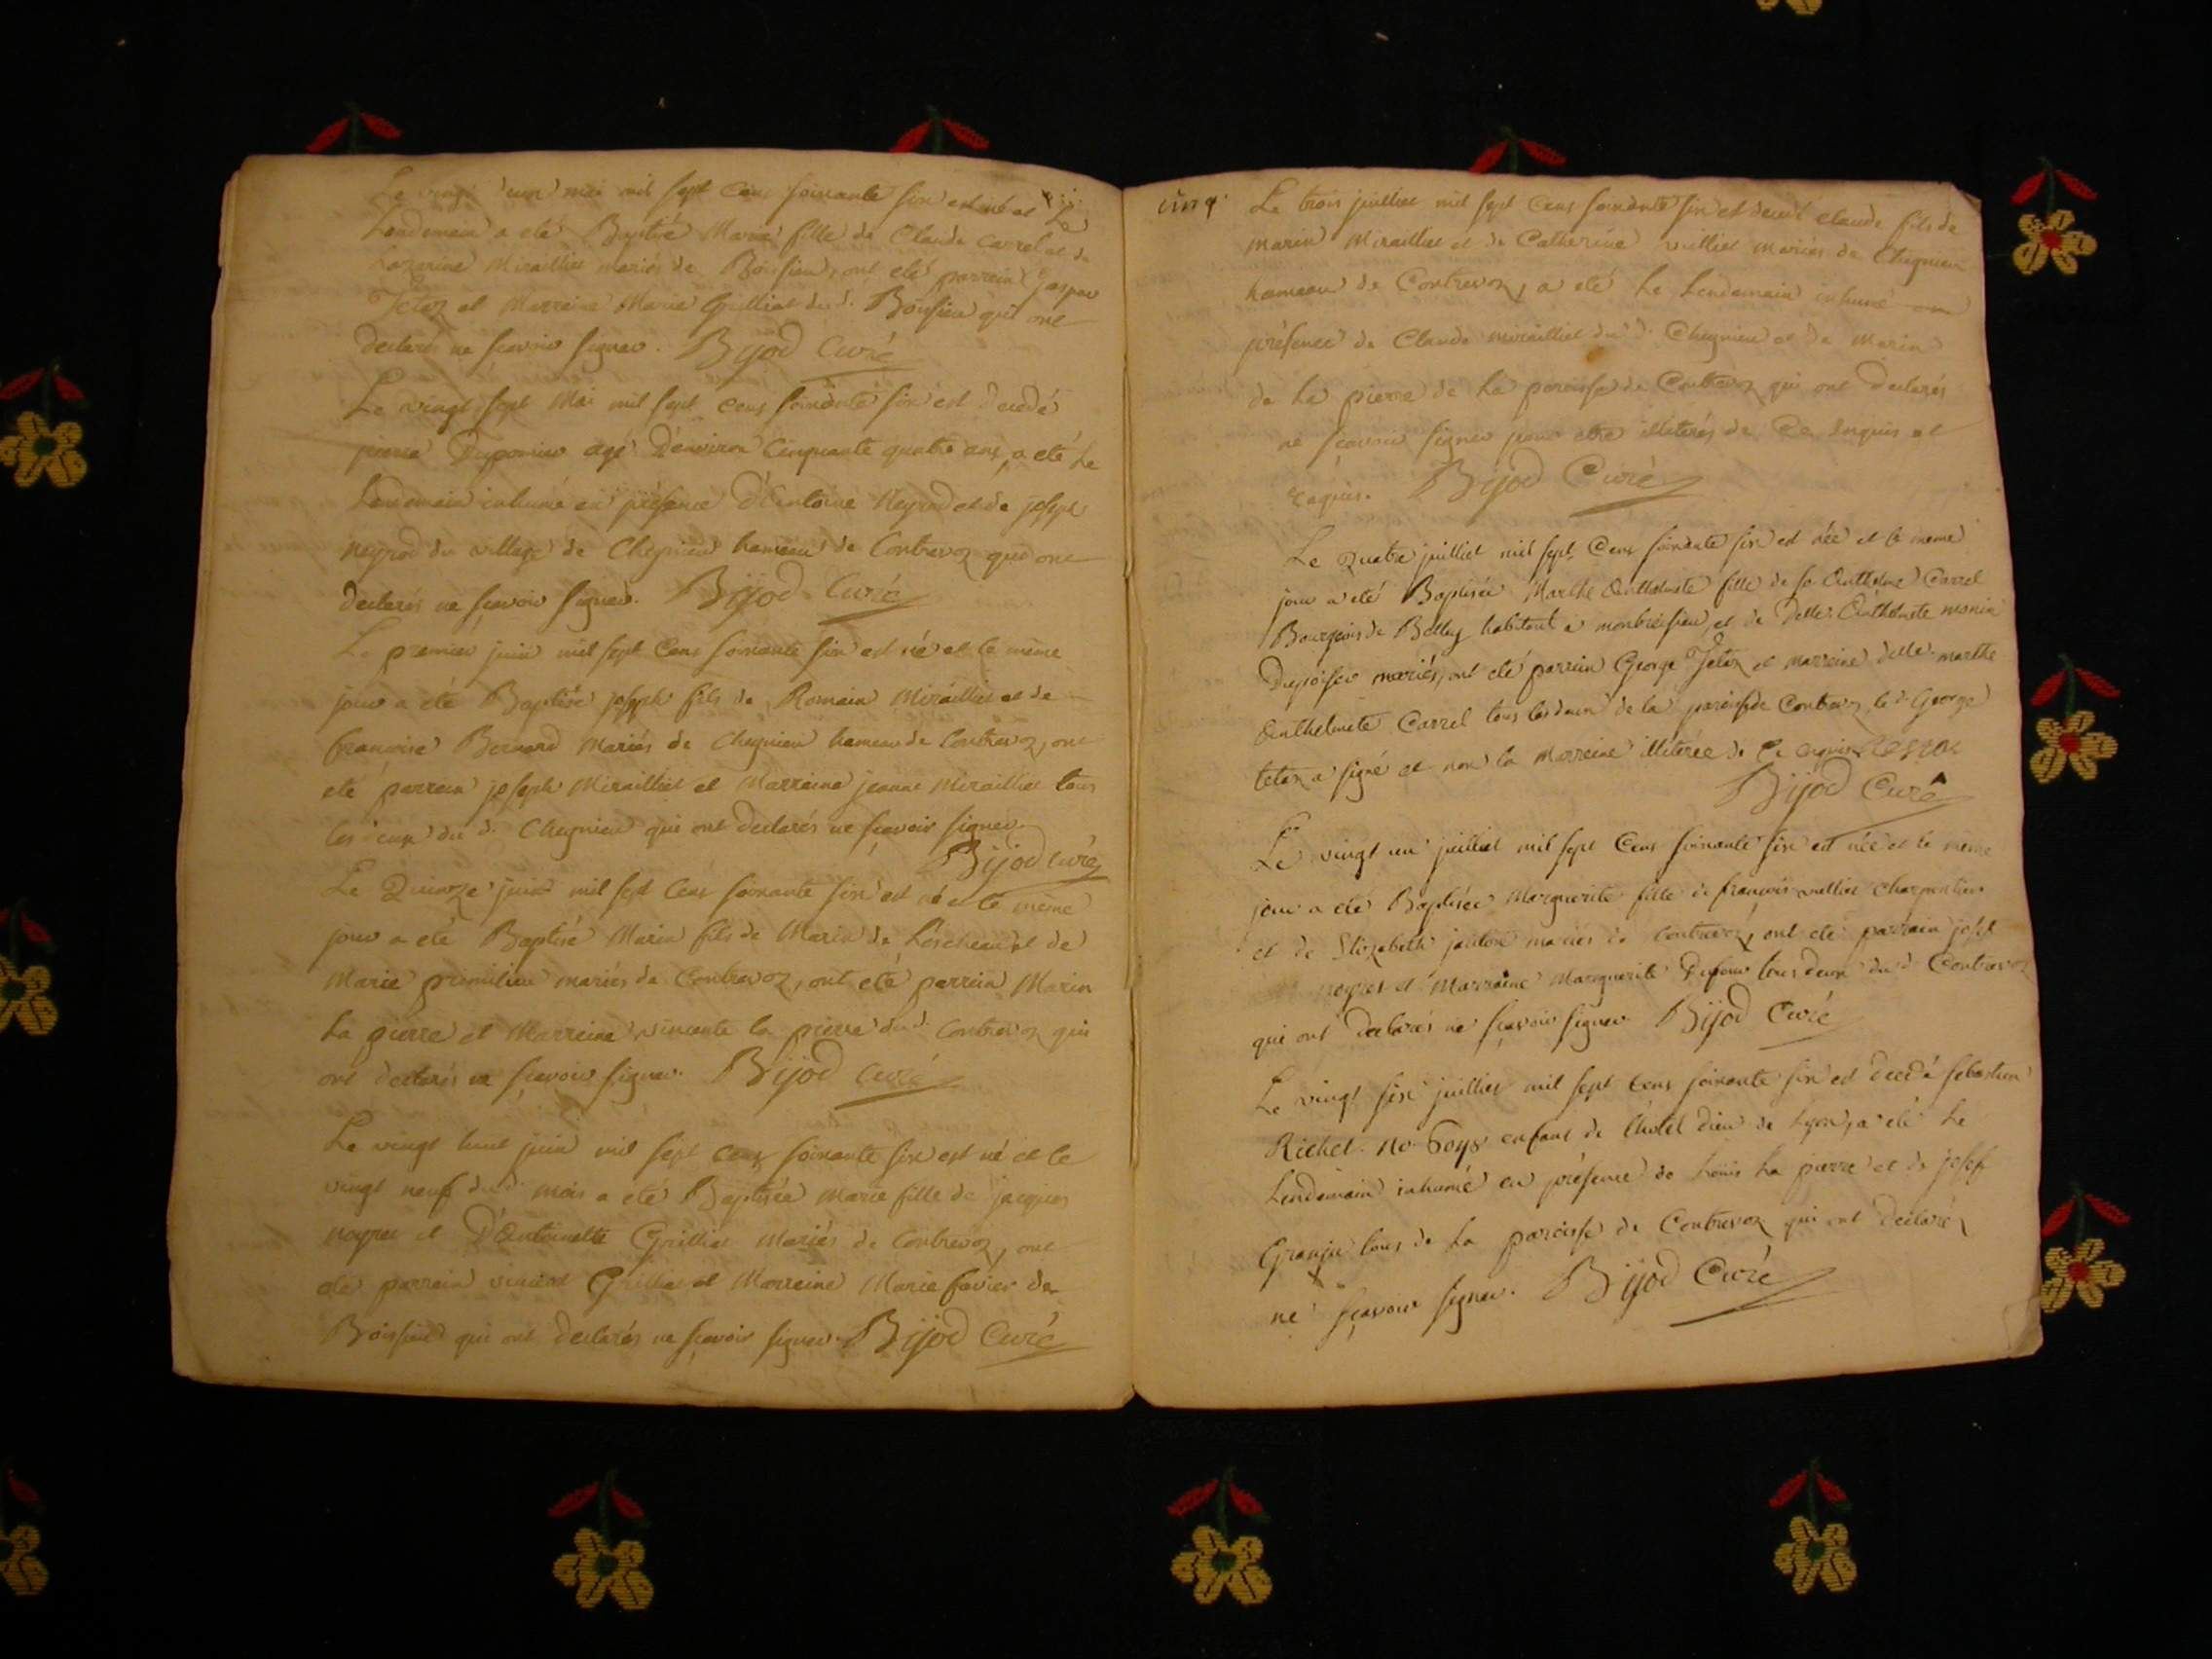 Le vingt deux mai mil sept cens soixante six est né et Le
Lendemain a eté Baptisé Marie fille de Claude Carrel et de
Lazarine Mirailliet mariés de Boissieu, ont eté parrain Gaspar
Tetaz et Marreine Marie Grilliet du d. Boissieu qui ont
declarés ne sçavoir signer. Bijod Curé
Le vingt sept Mai mil sept cens soixante six est decedé
pierre agé D'environ Cinquante quatre ans, a eté Le
Lendemain inhumé en présence d'Antoine Neyrod et de joseph
neyrod du village de Cheynieu hameau de Contrevoz qui ont
declarés ne sçavoir signer. Bijod Curé
Le premier juin mil sept Cens soixante six est né et le même
jour a été Baptisé joseph fils de Romain Mirailliet et de
francoise Bernard Mariés de Cheynieu hameau de Contrevoz, ont
eté parrain joseph Mirailliet et Marraine jeanne Mirailliet tous
les deux du d. Cheynieu qui ont declarés ne sçavoir signer.
Bijod curé
Le Quinze juin mil sept Cens soixante six est né et le même
jour a eté Baptisé Marin fils de Marin de Lescheaux et de
Marie primilieu mariés de Contrevoz, ont eté parrain Marin
La pierre et Marreine vincente la pierre du d. Contrevoz qui
ont declarés ne sçavoir signer. Bijod Curé
Le vingt huit juin mil sept Cens soixante six est né et le
vingt neuf du d. mois a eté Baptisée Marie fille de jacques
noyret et D'Antoinette Grilliet Mariés de Contrevoz, ont
eté parrain vincent Grilliet et Marreine Marie favier de
Boissieu qui ont declarés ne sçavoir signer. Bijod Curé
cinq. Le trois juilliet mil sept Cens soixante six est decedé claude fils de
Marin Mirailliet et de Catherine vuilliet mariés de Cheynieu
hameau de Contrevoz, a eté Le Lendemain inhumé en
présence de Claude mirailliet du d. Cheynieu et de Marin
de La pierre de La paroisse de Contrevoz qui ont declarés
ne sçavoir signer pour etre illiterés de Ce enquis et
requis. Bijod Curé
Le Quatre juilliet mil sept Cens soixante six est née et le meme
jour a eté Baptisée Marthe Anthelmete fille de sr Anthelme Carrel
Bourgeois de Belley habitant a montbreisieu, et de Delle. Anthelmete monin
mariés, ont eté parrain George Tetaz et marreine delle. marthe
Anthelmete Carrel tous les deux de la paroisse de Contrevoz, le d. George
tetaz a signé et non la Marreine illiterée de Ce enquise
Bijod Curé
Le vingt un juilliet mil sept Cens soixante six est née et le meme
jour a eté Baptisée Marguerite fille de françois vuilliet charpentier
et de Elizabeth janton mariés de Contrevoz, ont eté parrain joseph
noyret et Marraine Marguerite Dufour tous deux du d. Contrevoz
qui ont declarés ne sçavoir signer. Bijod Curé
Le vingt six juilliet mil sept Cens soixante six est decedé sebastien
Richet. No. enfant de l'hotel dieu de Lyon, a eté Le
Lendemain inhumé en présence de Loüis La pierre et de joseph
Granju tous de La paroisse de Contrevoz qui ont declarés
ne sçavoir signer. Bijod Curé